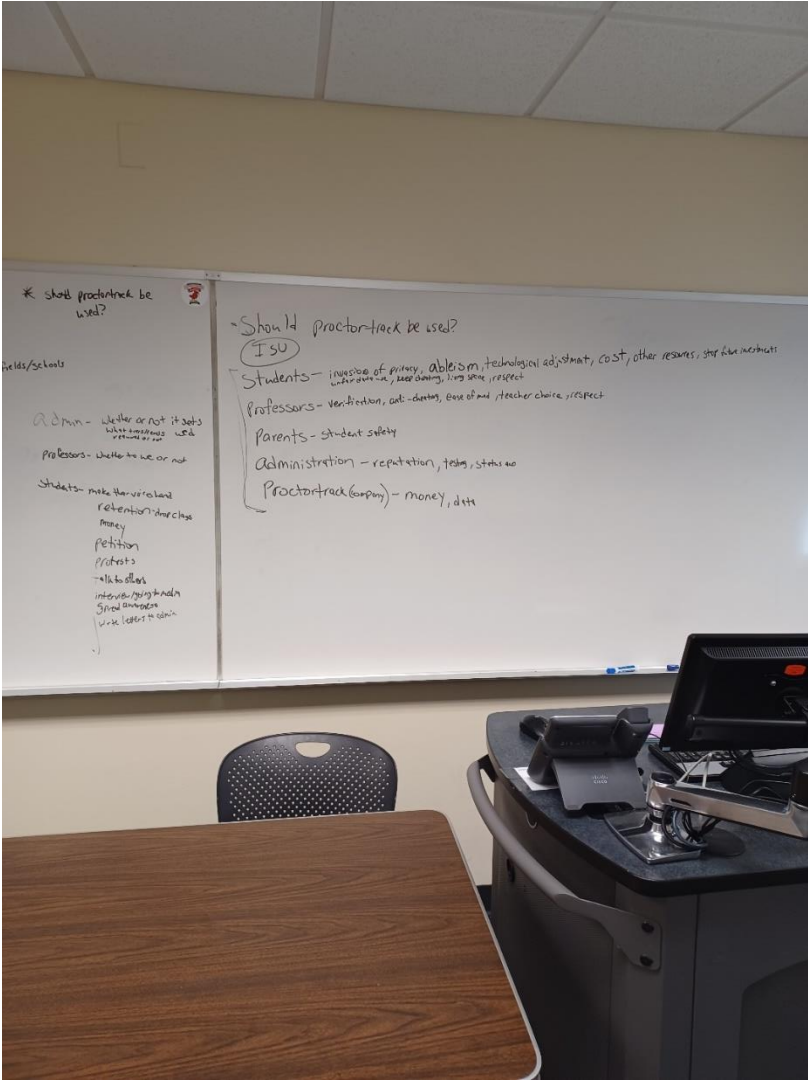 * should proctortrack be
used?
fields/schools
admin - whether or not it gets
used
professors - whether to use or not
Students - make their voice heard
retention - drop class
money
petition
protests
talk to others
interview/going to media
Spread awareness
write letters to admin
- Should proctor-track be used?
ISU
Students - invasion of privacy, ableism, technological adjustment, cost, other resources, stop future investments
unfair, keep cheating, living space, respect
Professors - verification, anti-cheating, ease of, teacher choice, respect
Parents - student safety
administration - reputation, testing, status quo
Proctortrack (company) - money, data